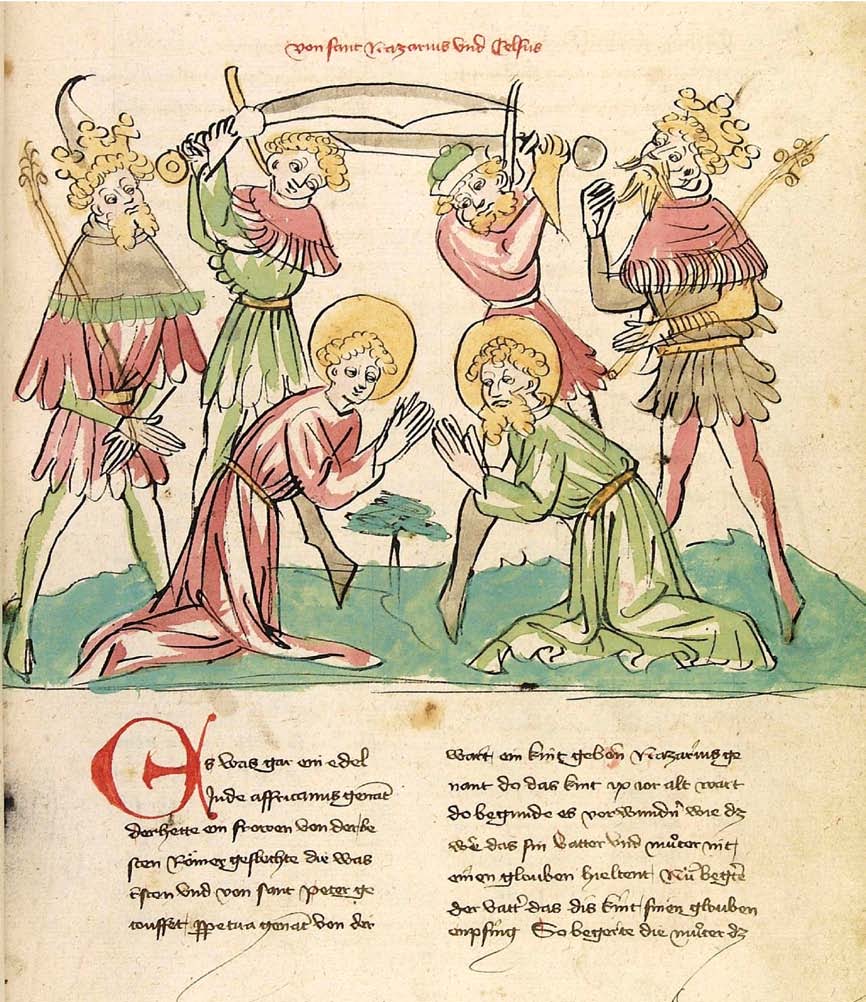 von sant Nazarius vnd Celsus
Es was gar ein edel
Jude affricanus genāt
der hette ein frowen von der be
sten Römer geslechte die was
cristen vnd von sant peter ge
touffet ꝑpetua genāt von der
wart ein kint geborn Nazarius ge
nant do das kint ix ior alt wart
do begunde es verwundern wie dz
were das sin vatter vnd muͦter nit
einen glouben hieltent Nuͦ begerte
der vatter das dis kint sinen glouben
enpfing So begerte die muͦter dz